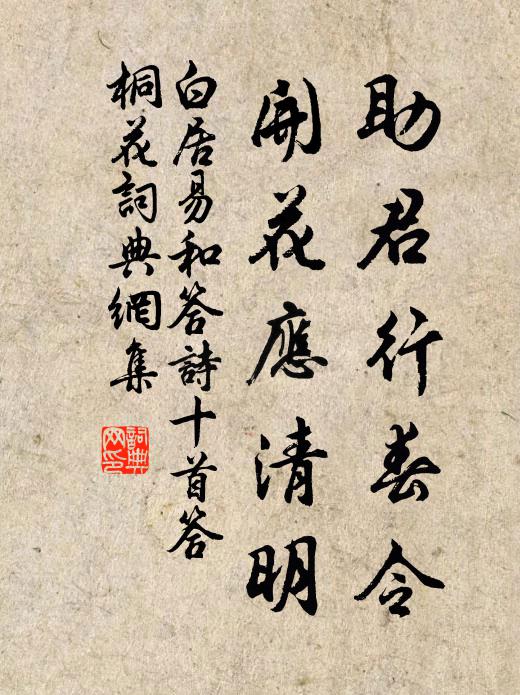 助君行春令
開花應清明
白居易和答詩十首答
桐花詞典網集
詞典网印